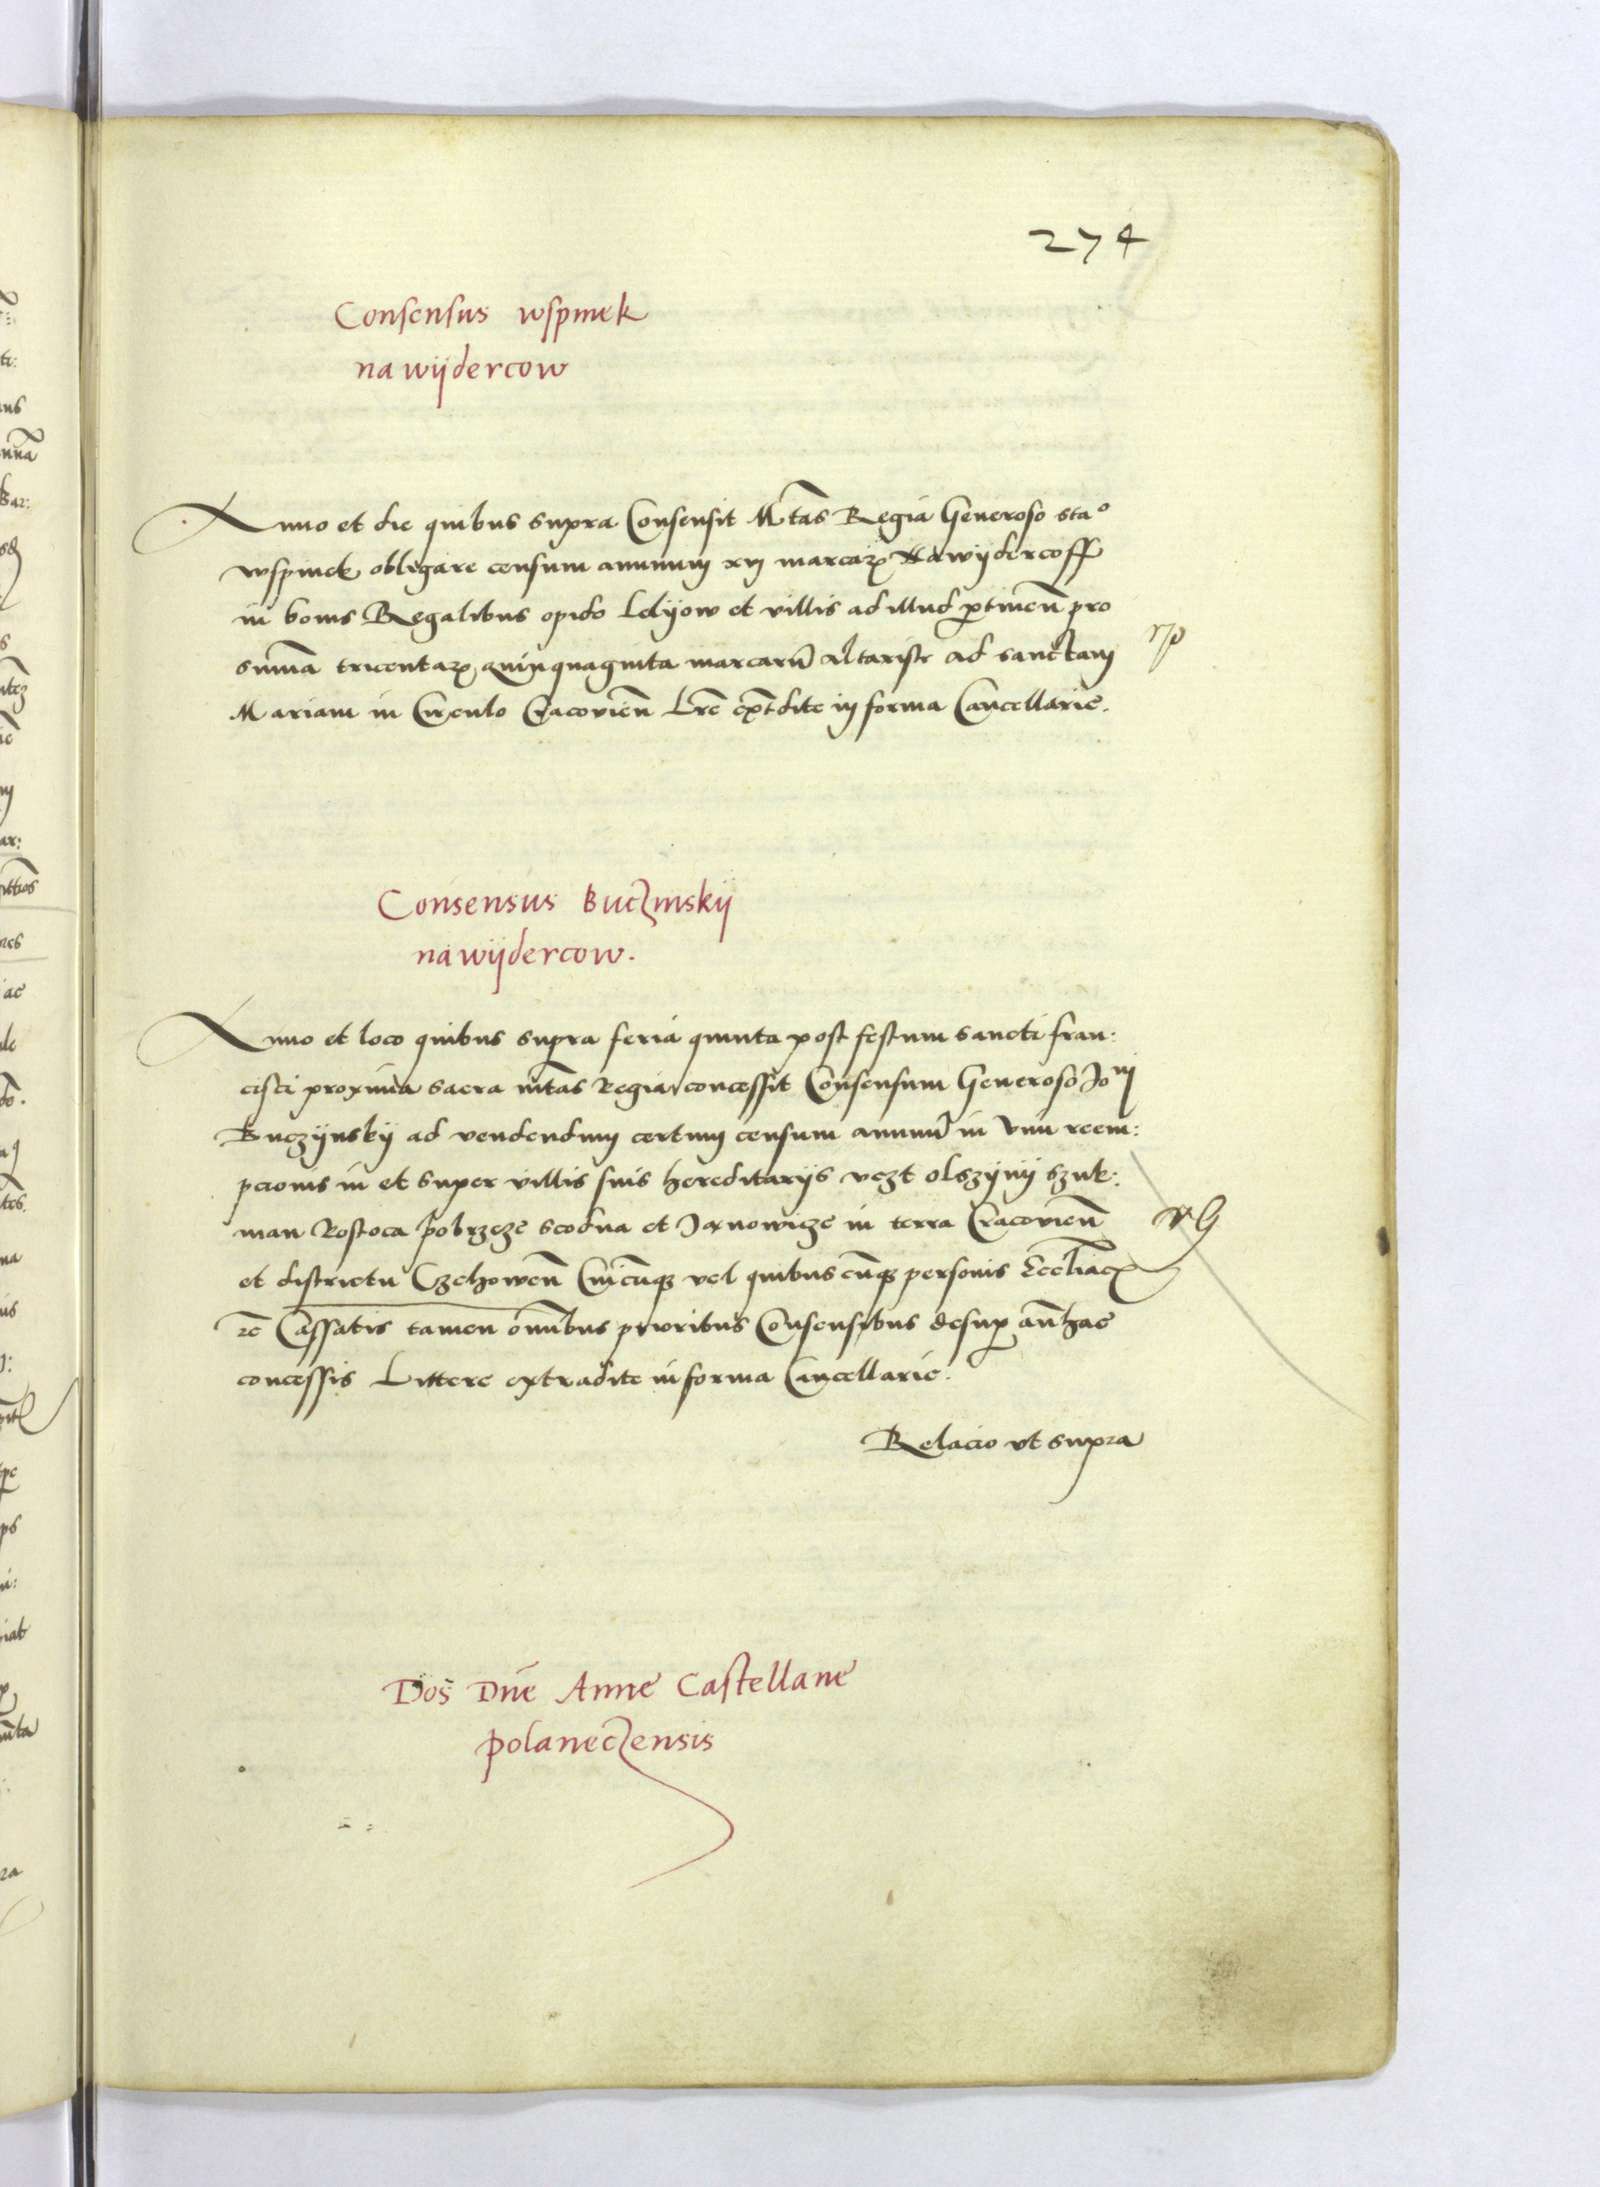 274
Consensus wspinek
na wijdercow
Anno et die quibus supra Consensit Mtas Regia Generoso sta⁰
wspinek obligare censum annuum xij marcar Nawijdercoff
in bonis Regalibus opido Lelijow et villis ad illud ptinen pro
summa tricentar quinquaginta marcaru altariste ad sanctam
Mariam in Circulo Cracovien Lre extdite in forma Cancellarie.
Consensus Buczinskij
na wijdercow.
Anno et loco quibus supra feria quinta post festum sancti fran:
cisci proxima sacra mtas Regia concessit Consensum Generoso Joni
Buczijnskij ad vendendum certum censum annuu in vim reem:
pcionis in et super villis suis hereditarijs vczt olszijnij szuk:
man Rostoca pobrzeze scodna et Janowicze in terra Cracovien
et districtu Czchowen Cuicuq vel quibus cuq personis Eccliac
re Cassatis tamen omnibus prioribus Consensibus desup anthac
concessis Littere extradite in forma Cancellarie.
Relacio ut supra
Dos Dne Anne Castellane
polaneczensis